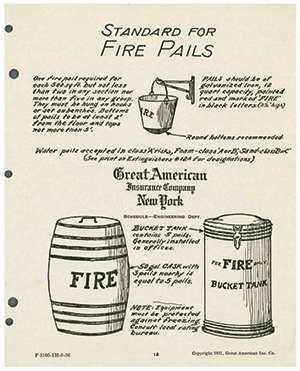 STANDARD FOR
FIRE PAILS
One fire pail required for
each 500 sq. ft. but not less
than two in any section nor
more than five in any group.
They must be hung on hooks
or set on benches. Bottoms
of pails to be at least 2'
from the floor and tops
not more than 5'.
PAILS should be of
galvanized iron, 12
quart capacity, painted
red and marked "FIRE"
in black letters
FIRE
Round bottoms recommended.
Water pails accepted in class "A" risks, Foam-class "A or B", Sand-class "B or C"
(See print on Extinguishers # 12A for designations)
Great American
Insurance Company
New York
SCHEDULE—ENGINEERING DEPT.
BUCKET TANK
contains 5 pails.
Generally installed
in offices.
50 gal. CASK with
3 pails nearby is
equal to 5 pails.
NOTE: Equipment
must be protected
against freezing.
Consult local rating
bureau.
FIRE
FOR FIRE ONLY
BUCKET TANK
12
Great American Ins. Co.